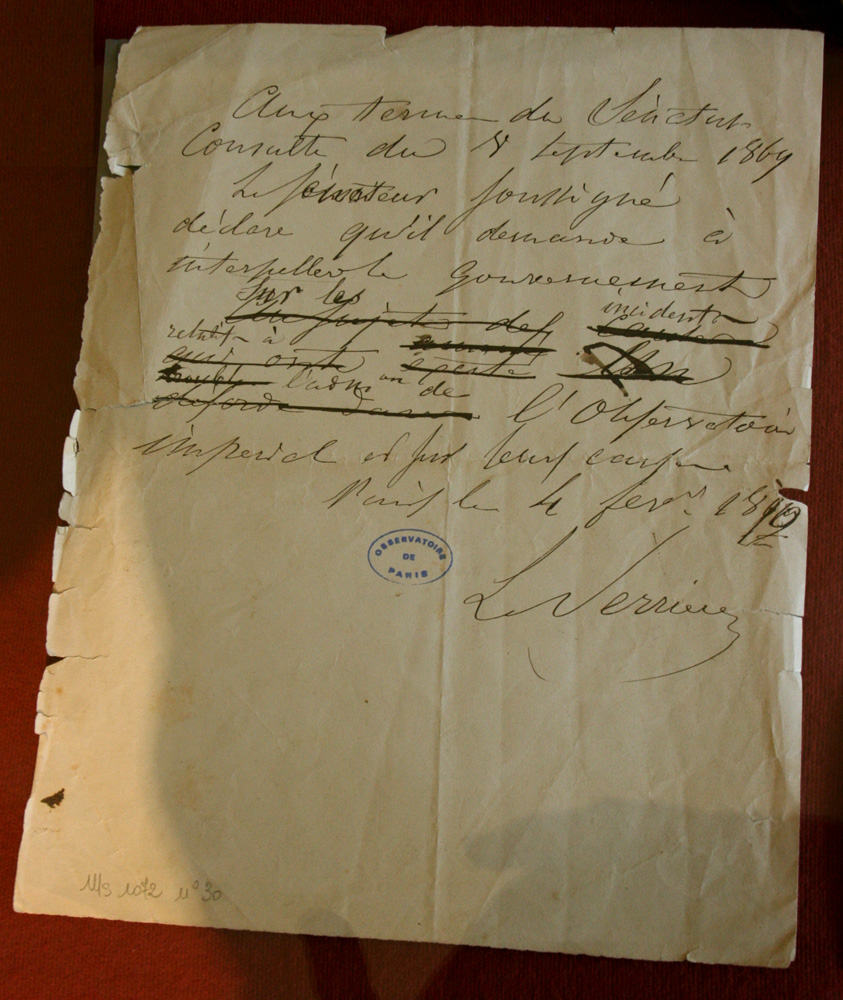 Aux termes du Sénatus
Consulte du 8 septembre 1869
Le sénateur soussigné
déclare qu'il demande à
interpeller le gouvernement
sur les incidents
relatifs à
l'admon de
l'Observatoire
impérial et sur leurs causes
Paris le 4 fevr. 1870
Le Verrier
OBSERVATOIRE
DE
PARIS
Ms 1072 n° 30